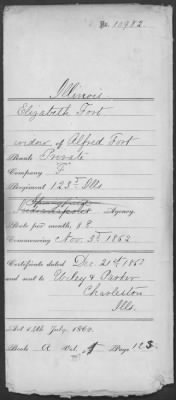 No. 10982
Illinois
Elizabeth Fort
widow of Alfred Fort
Rank Private
Company F
Regiment 123d Ills
Agency.
Rate per month, $8
Commencing Nov. 3d 1862
Certificate dated Dec 21st 1863
and sent to Wiley & Parker
Charleston
Ills.
Act 14th July, 1862.
Book A Vol. Page 123